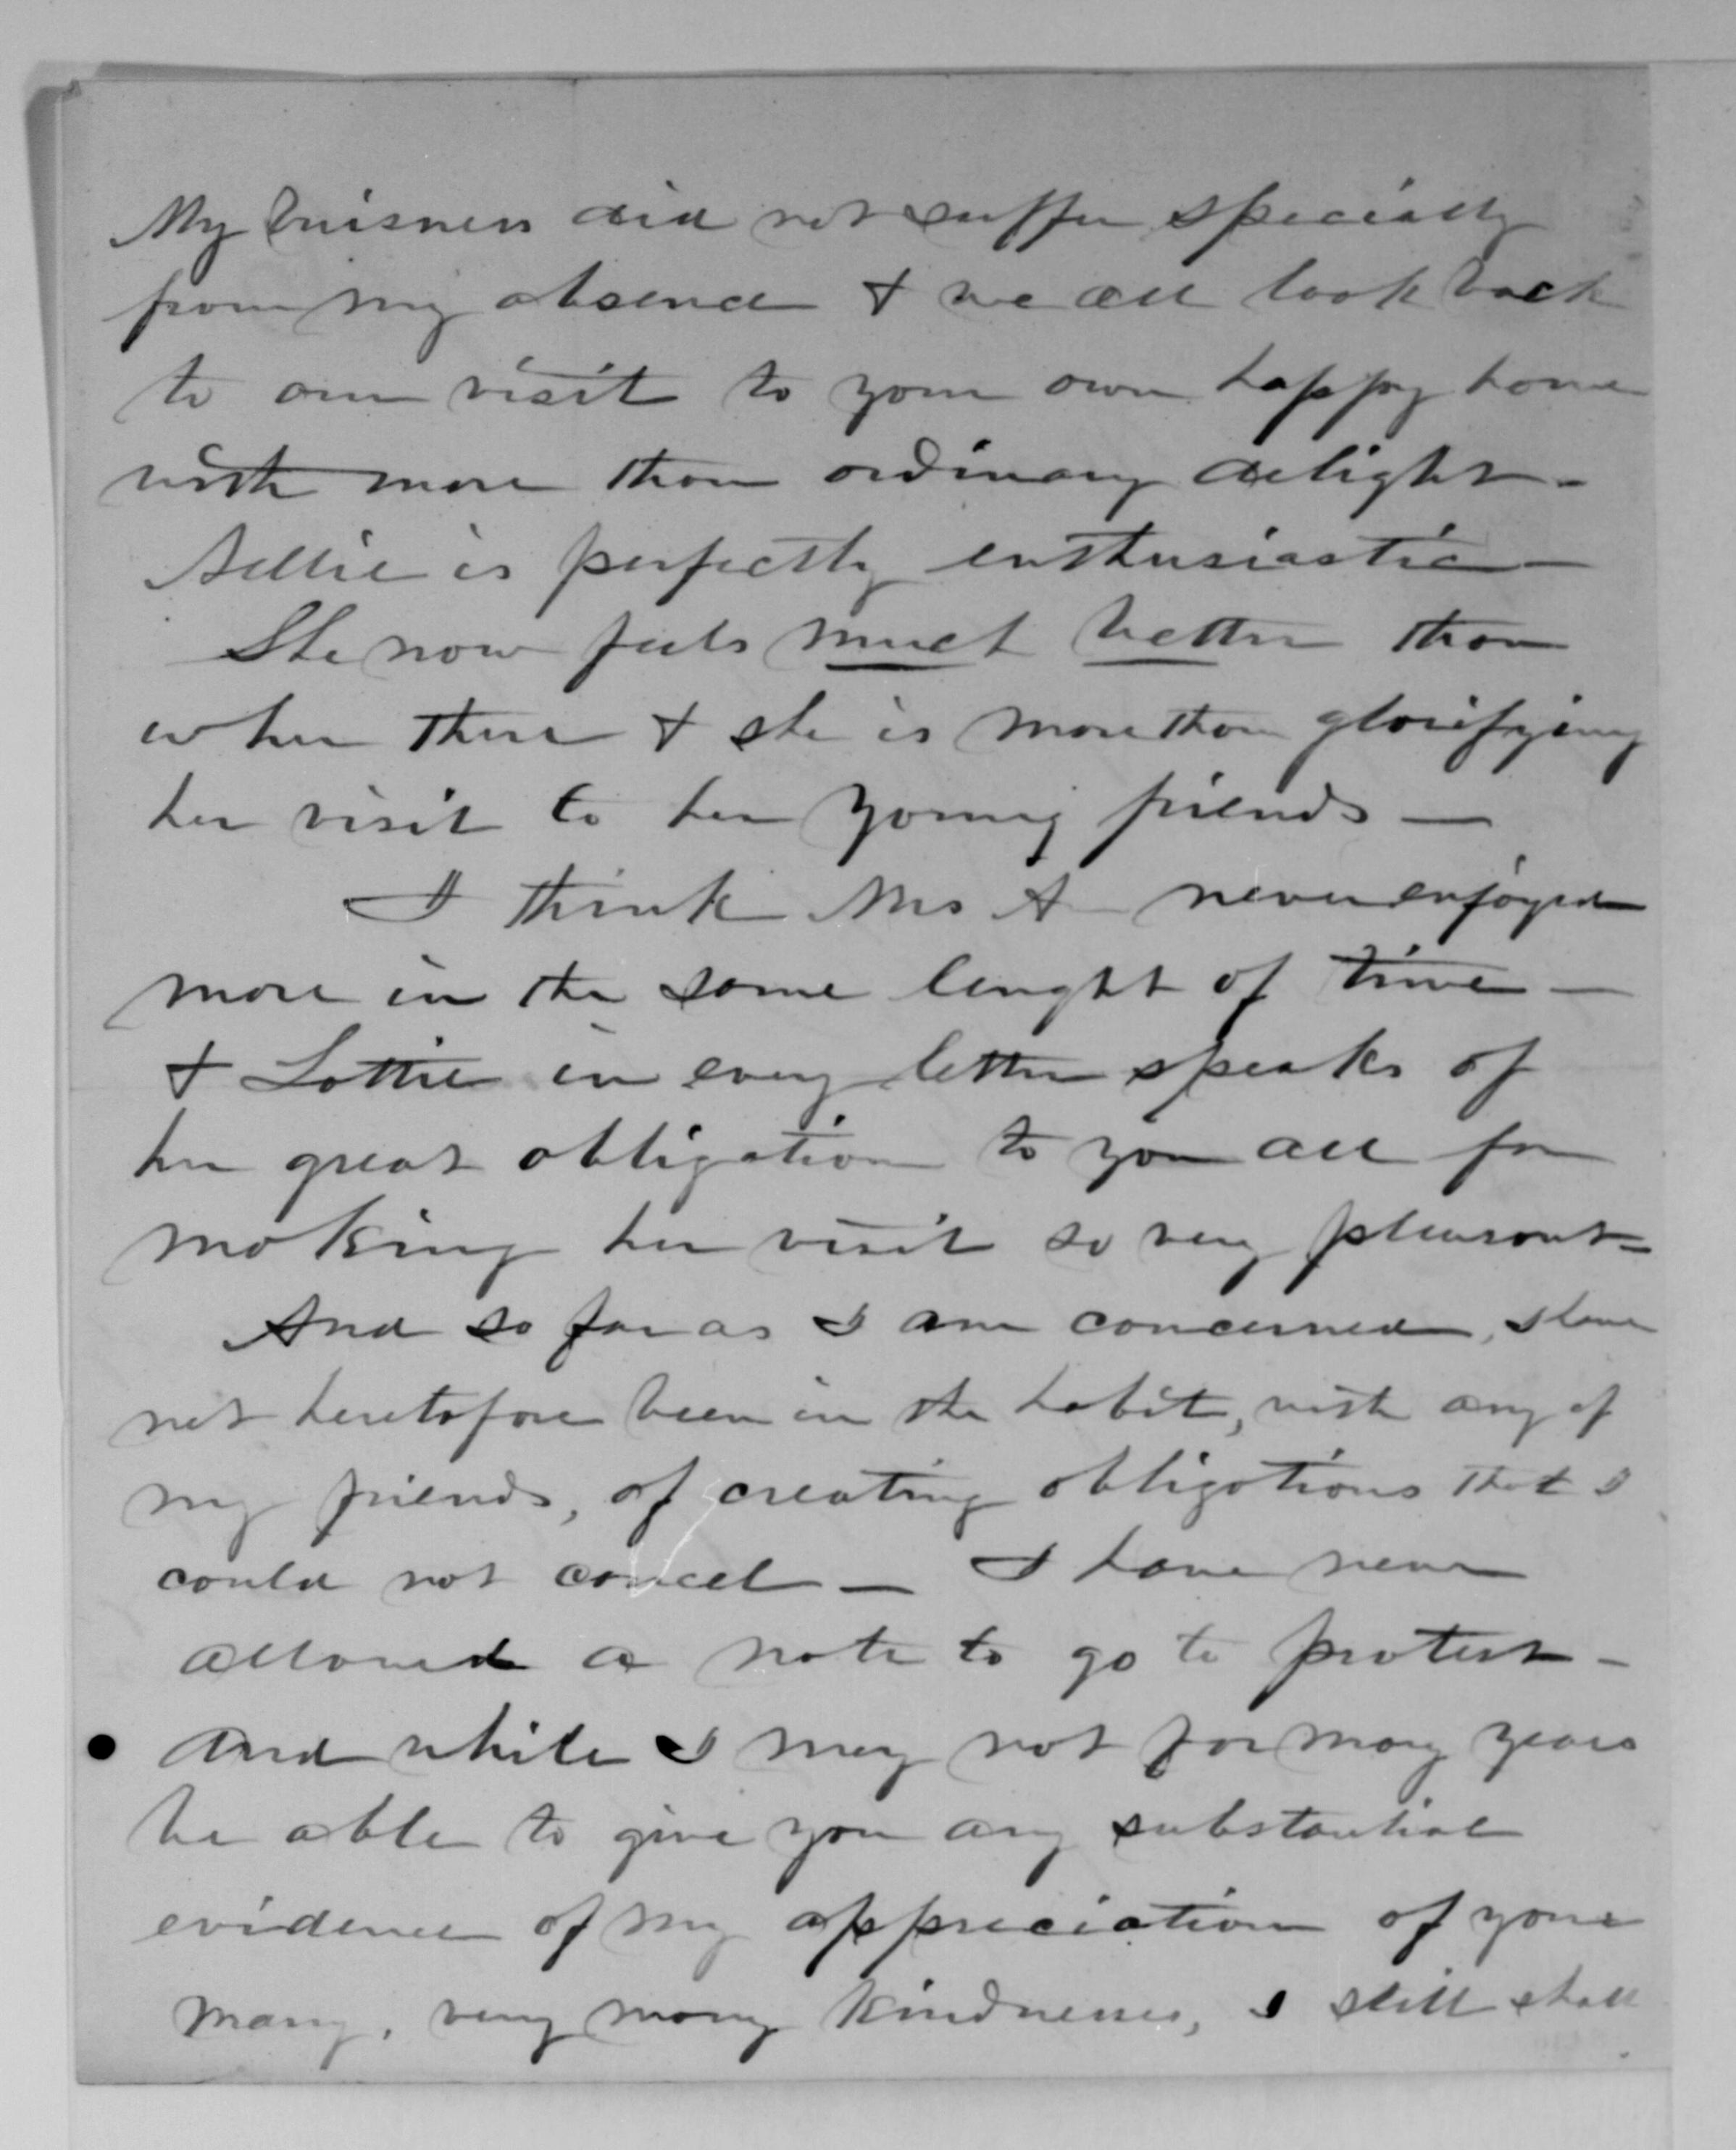 My buisness did not suffer specially
from my absence & we all look back
to our visit to your own happy home
with more than ordinary delight -
Nellie is perfectly enthusiastic -
She now feels much better than
when there & she is more than glorifying
her visit to her young friends —
I think Mrs A - never enjoyed
more in the same lenght of time —
& Lottie in every letter speaks of
her great obligation to you all for
making her visit so very pleasant -
And so far as I am concerned, I have
not heretofore been in the habit, with any of
my friends, of creating obligations that I
could not cancel — I have never
allowed a note to go to protest -
and while I may not for many years
be able to give you any substantial
evidence of my appreciation of your
many, very many kindnesses, I still shall